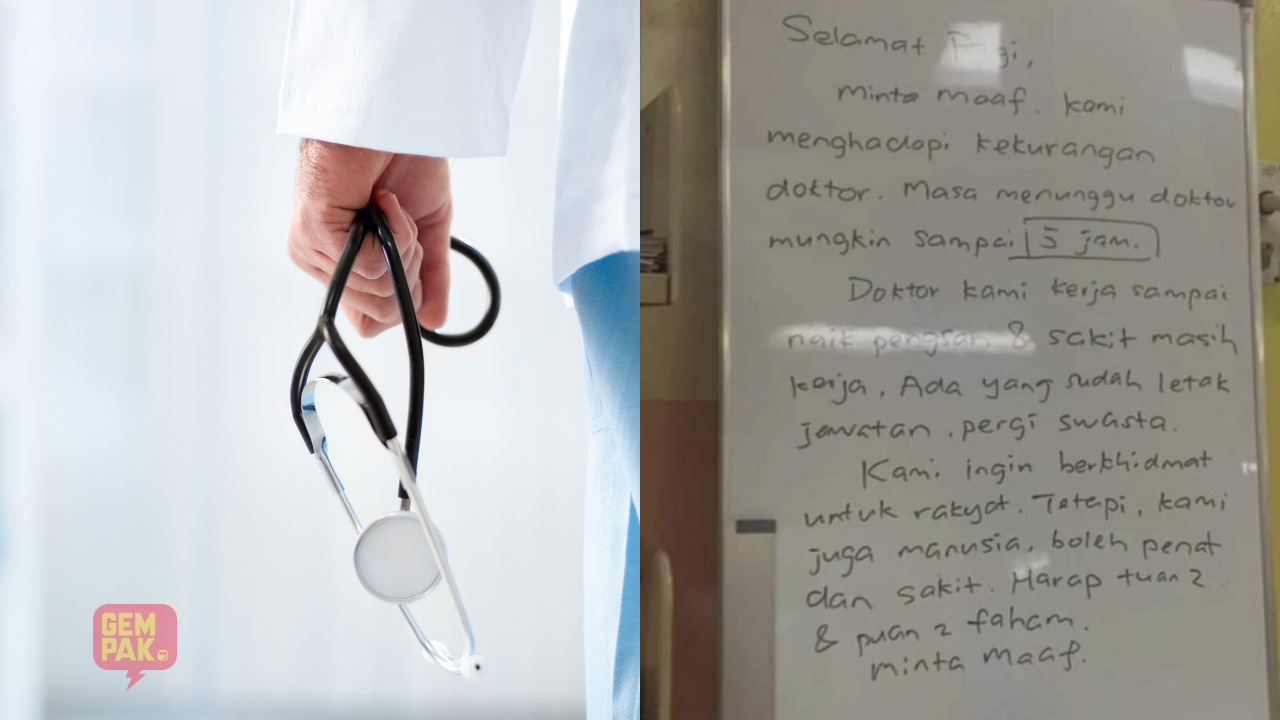 GEM
PAK
Selamat Pagi,
minta maaf. Kami
menghadapi kekurangan
doktor. Masa menunggu doktor
mungkin sampai 5 jam.
Doktor kami kerja sampai
naik pengsan & sakit masih
kerja. Ada yang sudah letak
jawatan, pergi swasta.
Kami ingin berkhidmat
untuk rakyat. Tetapi, kami
juga manusia, boleh penat
dan sakit. Harap tuan2
& puan2 faham.
minta maaf.